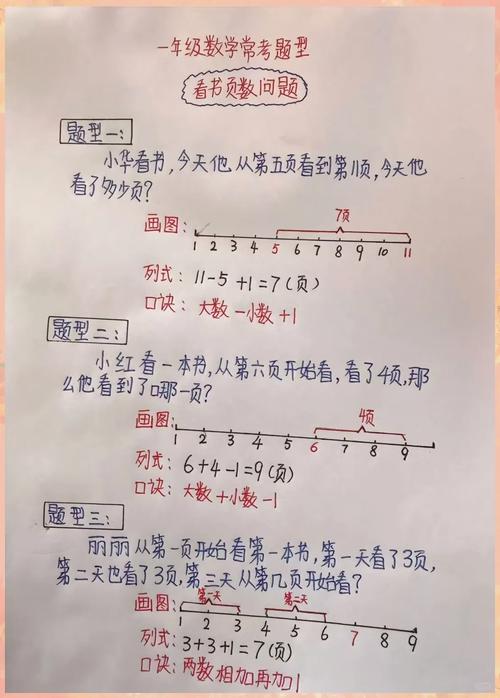 一年级数学常考题型
看书页数问题
题型一:
小华看书,今天他从第五页看到第11页,今天他
看了多少页?
画图:
7页
1 2 3 4 5 6 7 8 9 10 11
列式: 11-5+1=7(页)
口诀: 大数-小数+1
题型二:
小红看一本书,从第六页开始看,看了4页,那
么他看到了哪一页?
画图:
4页
1 2 3 4 5 6 7 8 9
列式: 6+4-1=9(页)
口诀: 大数+小数-1
题型三:
丽丽从第一页开始看第一本书,第一天看了3页,
第二天也看了3页,第三天从第几页开始看?
画图:
第一天 第二天
1 2 3 4 5 6 7 8 9
列式: 3+3+1=7(页)
口诀: 两数相加再加1